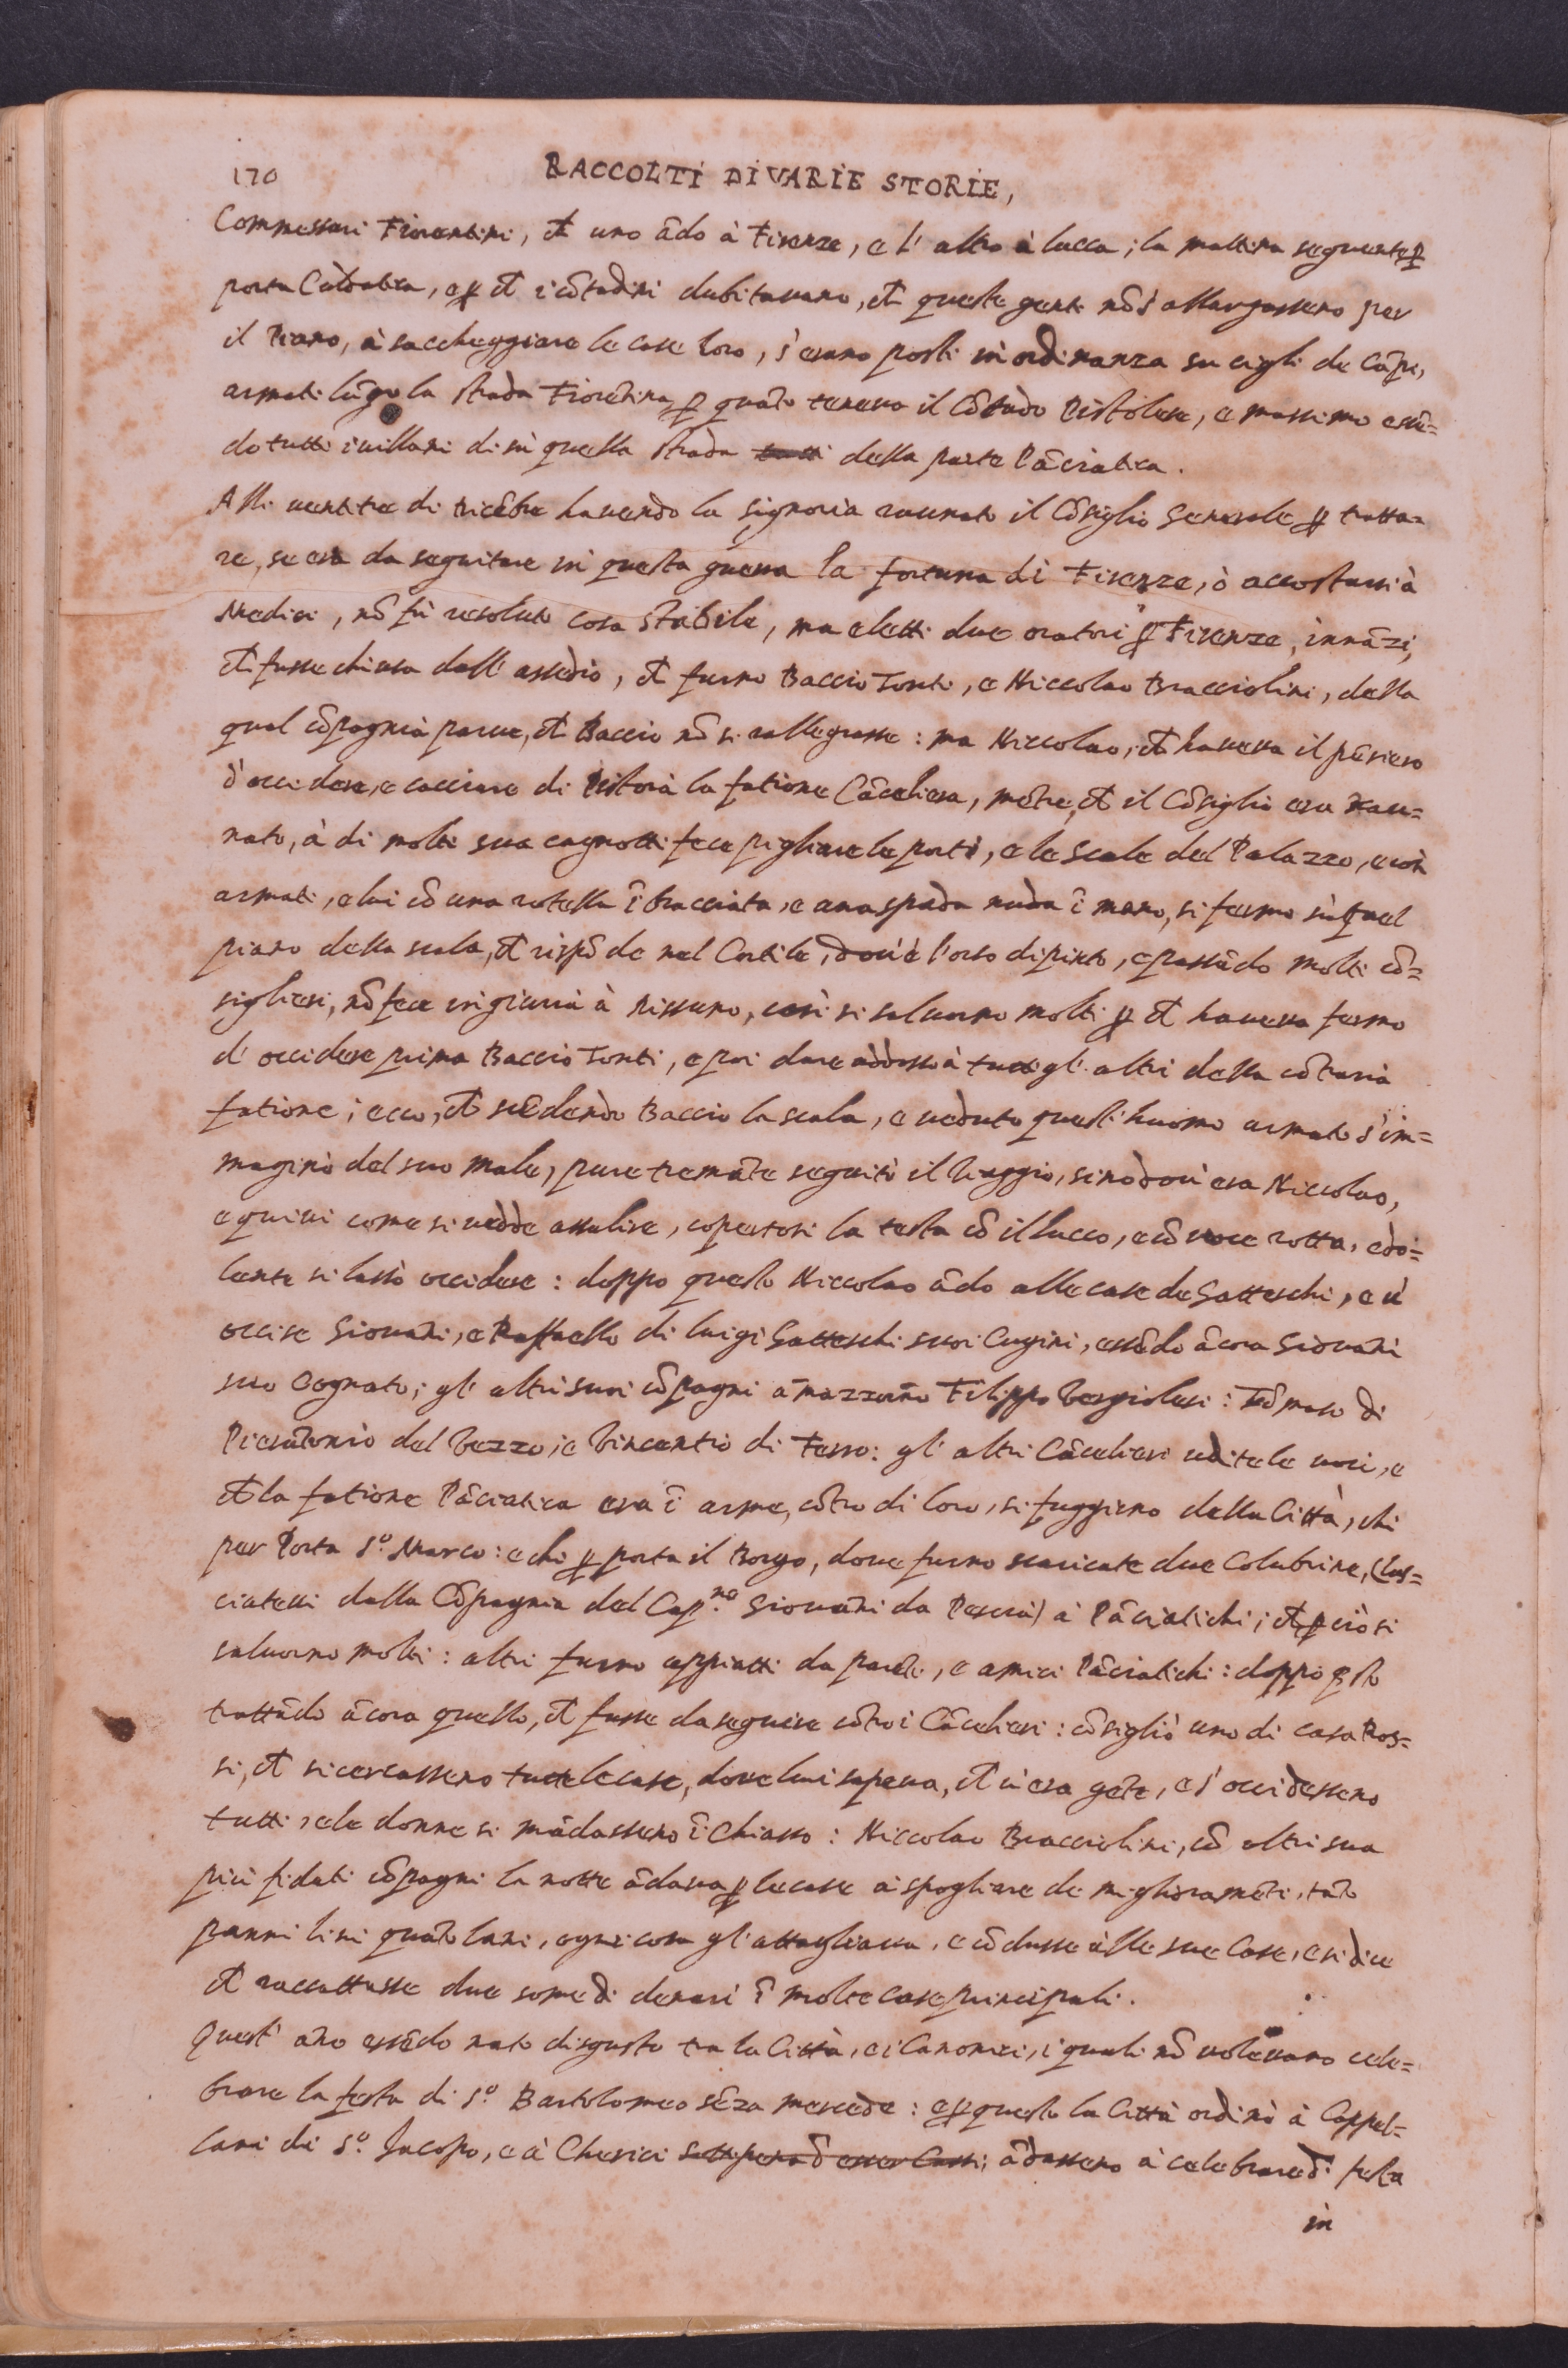 170
RACCOLTI DI VARIE STORIE,
Commessari Fiorentini, ch̃ uno ãdo à Firenze, e l' altro à lucca; la mattina seguente p̱
porta Caldatica, e p̱ ch̃ i cõtadini dubitauano, ch̃ queste genti nõ s' allargasseno per
il Piano, à saccheggiare le case loro, s' erano posti in ordinanza su cigli de Cãpi,
armati lũgo la strada Fiorẽtina, p̱ quãto teneua il Cõtado Pistolese, e massimo essẽ=
do tutti i uillani di in quella strada della parte Pãciatica.
Alli uentitre di dicẽbre hauendo la signoria raunato il Cõsiglio Generale p̱ tratta=
re, se era da seguitare in questa guerra la fortuna di Firenze, ò accostarsi à
Medici, nõ fù resoluto cosa stabile, ma eletti due oratori p̱ Firenze, innãzi,
ch̃ fusse chiusa dall' assedio, ch̃ furno Baccio Tonti, e Niccolao Bracciolini, della
qual cõpagnia parue, ch̃ Baccio nõ si rallegrasse: ma Niccolao, ch̃ haueua il pẽsiero
d' occidere, e cacciare di Pistoia la fatione Cãceliera, mẽtre, ch̃ il Cõsiglio era rau=
nato, à di molti sua cagnotti fece pigliare le porti, e le Scale del Palazzo, e con
armati, e lui cõ una rotella ĩ bracciata, e una spada nuda ĩ mano, si fermo sù quel
piano della scala, ch̃ rispõde nel Cortile, dou' è l' orso dipinto, e passãdo molti cõ=
siglieri, nõ fece ingiuria à nissuno, così si saluorno molti p̱ ch̃ haueua fermo
d' occidere prima Baccio Tonti, e poi dare addosso à tutti gl' altri della cõtraria
fatione; ecco, ch̃ scẽdendo Baccio la scala, e ueduto quest' huomo armato s' im=
maginò del suo male, pure tremãte seguitò il Viaggio, sino dou' era Niccolao,
e quiui come si uedde assalire, copertosi la testa cõ il lucco, e cõ uoce rotta, e do=
lente si lassò occidere: doppo questo Niccolao ãdo alle case de Gatteschi, e u'
occise Giouãni, e Raffaello di luigi Gatteschi suoi Cugini, essẽdo ãcora Giouãni
suo Cognato; gl' altri suoi cõpagni ãmazzorno Filippo Vergiolesi: Tõmaso di
Pierãtonio del Vezzo; e Vincentio di Ferro: gl' altri Cãcelieri udite le uoci, e
ch̃ la fatione Pãciatica era ĩ arme, cõtro di loro, si fuggirno della Città, chi
per Porta S.º Marco: e chi p̱ porta il Borgo, doue furno scaricate due Colubrine, (las=
ciatesi dalla Cõpagnia del Cap.no Giouãni da Pescia) à Pãciatichi; ch̃ p̱ ciò si
saluorno molti: altri furno appiatti da parẽti, e amici Pãciatichi: doppo q̃sto
trattãdo ãcora quello, ch̃ fusse da seguire cõtro i Cãcelieri: cõsigliò uno di casa Ros=
si, ch̃ si cercasseno tutte le case, doue lui sapeua, ch̃ u' era gẽte, e s' occidesseno
tutti, e le donne si mãdasseno ĩ Chiasso: Niccolao Bracciolini, cõ altri sua
più fidati cõpagni la notte ãdaua p̱ le case à spogliare de miglioramẽti, tãto
panni lini quãto lani, ogni cosa gl' attagliaua, e cõdusse alle sue Case, e si dice
ch̃ raccattasse due some di denari ĩ molte case principali.
Quest' ãno essẽdo nato disgusto tra la Città, e i Canonici, i quali nõ uoleuano cele=
brare la festa di S.º Bartolomeo sẽza mercede: e p̱ questo la Città ordinò à Cappel=
lani di S.º Jacopo, e à Cherici sotto pena d' esser Cassi, ãdasseno à celebrare d.ª festa
in